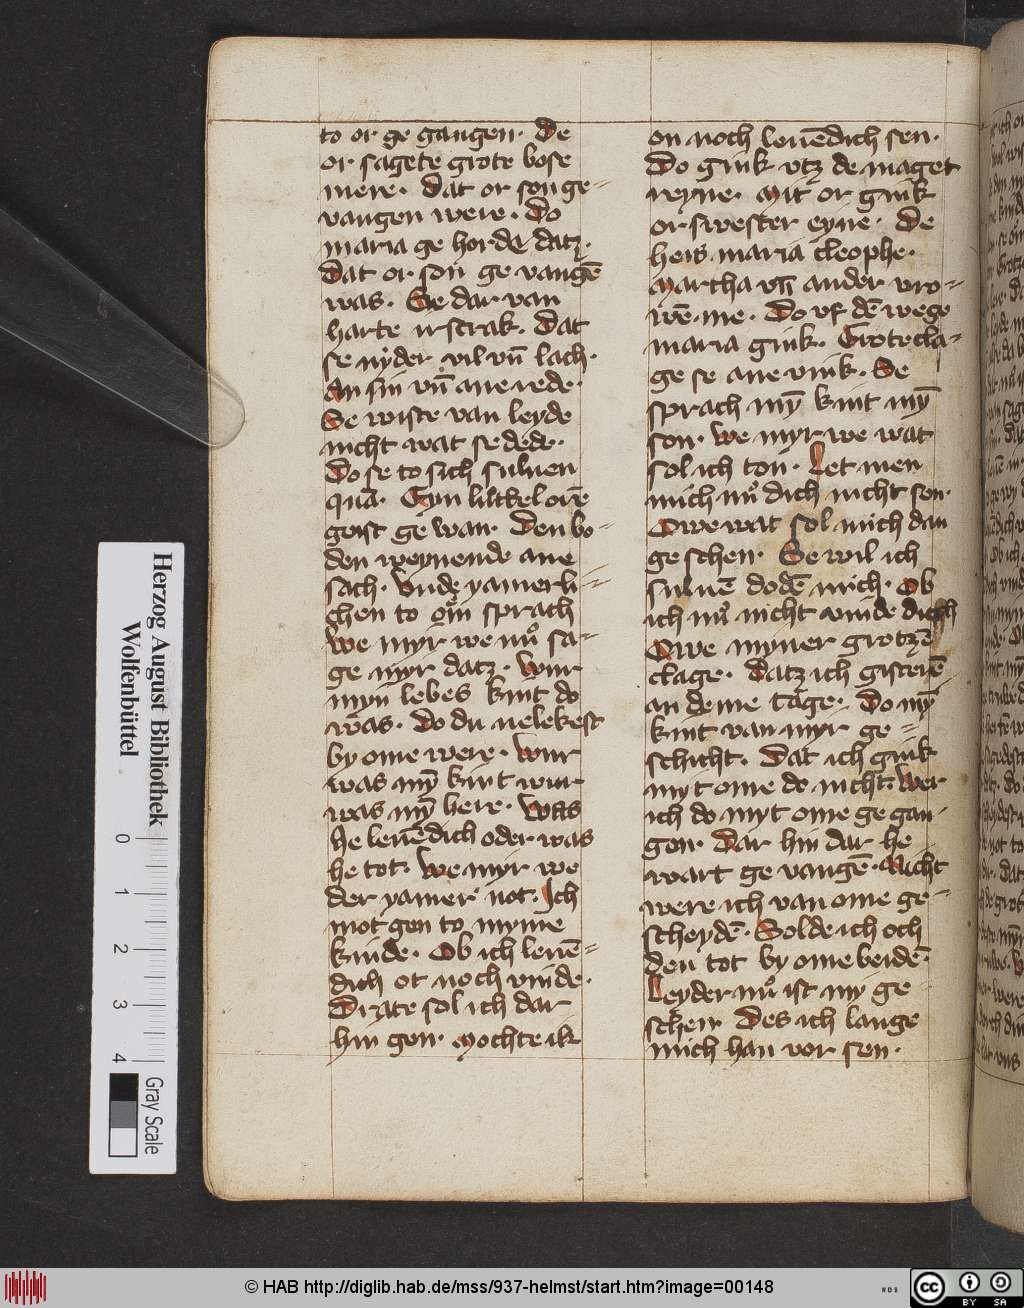 to or ge gangen. De
or sagete grote bose
mere. Dat or son ge-
vangen were. Do
maria ge horde datz.
Dat or son ge vangē
was. Se dar van
harte irscrak. Dat
se nyder vil vn̄ lach.
An sin vn̄ ane rede.
Se wiste van leyde
nicht wat se dede.
Do se to sich suluen
quā. Eyn luttel orē
geist ge wan. Den bo-
den weynende ane
sach. Vnde yamerli-
chen to om sprach
We myr we nů sa-
ge myr datz. Wur
myn lebes kint do
was. Do du nelekest
by ome were. Wur
was mȳ kint wur
was mȳ here. Was
he leuēdich oder was
he tot. We myr we
der yamer not. Ich
mot gen to myme
kinde. Ob ich leuē-
dich ot noch vinde.
Drate sol ich dar
hin gen. Mochte ik
on noch leuēdich sen.
Do gink vtz de maget
reyne. Mit or gink
or swester eyne. De
heis maria cleophe.
Martha vn̄ ander vro-
wē me. Do vf dē wege
maria gink. Grote cla-
ge se ane vink. Se
sprach mȳ kint mȳ
son. We myr we wat
sol ich ton. Let men
mich nů dich nicht sen.
Owe wat sol mich dan
ge schen. Se wil ich
suluē dodē mich. Ob
ich nů nicht vinde dich
Owe myner grotzē
clage. Datz ich gisterē
an deme tage. Do mȳ
kint van myr ge-
schicht. Dat ich gink
myt ome do nicht. Wer
ich do myt ome ge gan-
gen. Dar hin dar he
wart ge vangē. Nicht
were ich van ome ge-
scheydē. Solde ich och
den tot by ome beidē.
Leyder nů ist my ge-
schen. Des ich lange
mich han vor sen.
Herzog August Bibliothek
Wolfenbüttel
0 1 2 3 4
Gray Scale
© HAB http://diglib.hab.de/mss/937-helmst/start.htm?image=00148
WDB
cc BY SA